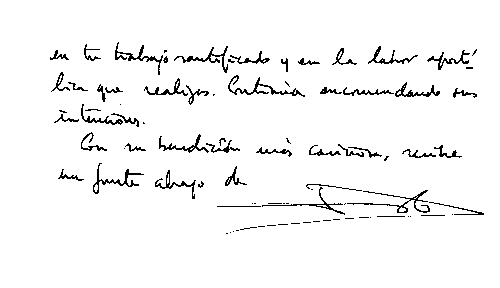 en tu trabajo santificado y en la labor apostó-
lica que realizas. Continúa encomendando sus
intenciones.
Con su bendición más cariñosa, recibe
un fuerte abrazo de